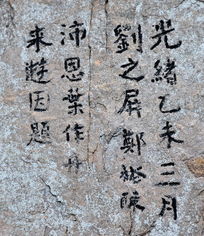 光緒乙未三月
劉之屏鄭㮣陳
沛恩葉作舟
来遊因題